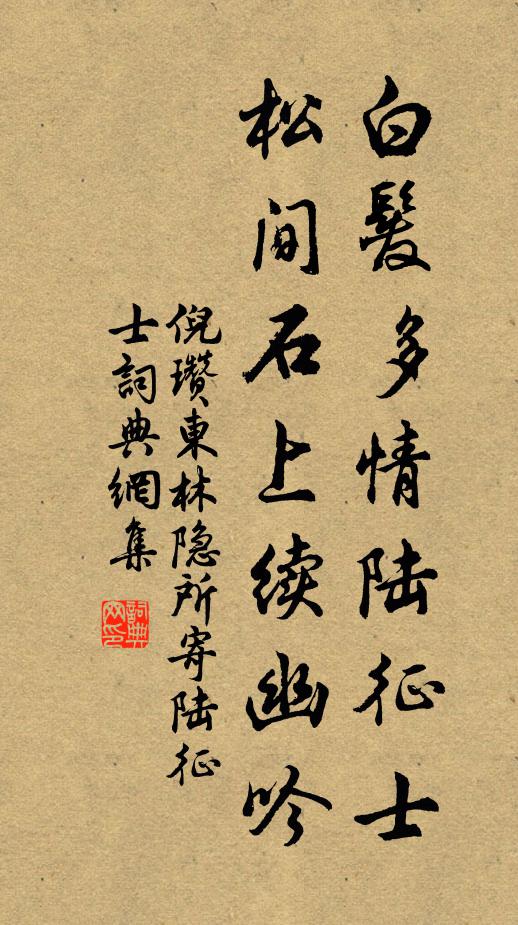 白髮多情陆征士
松间石上续幽吟
倪瓚東林隐所寄陆征
士詞典網集
詞典
网印